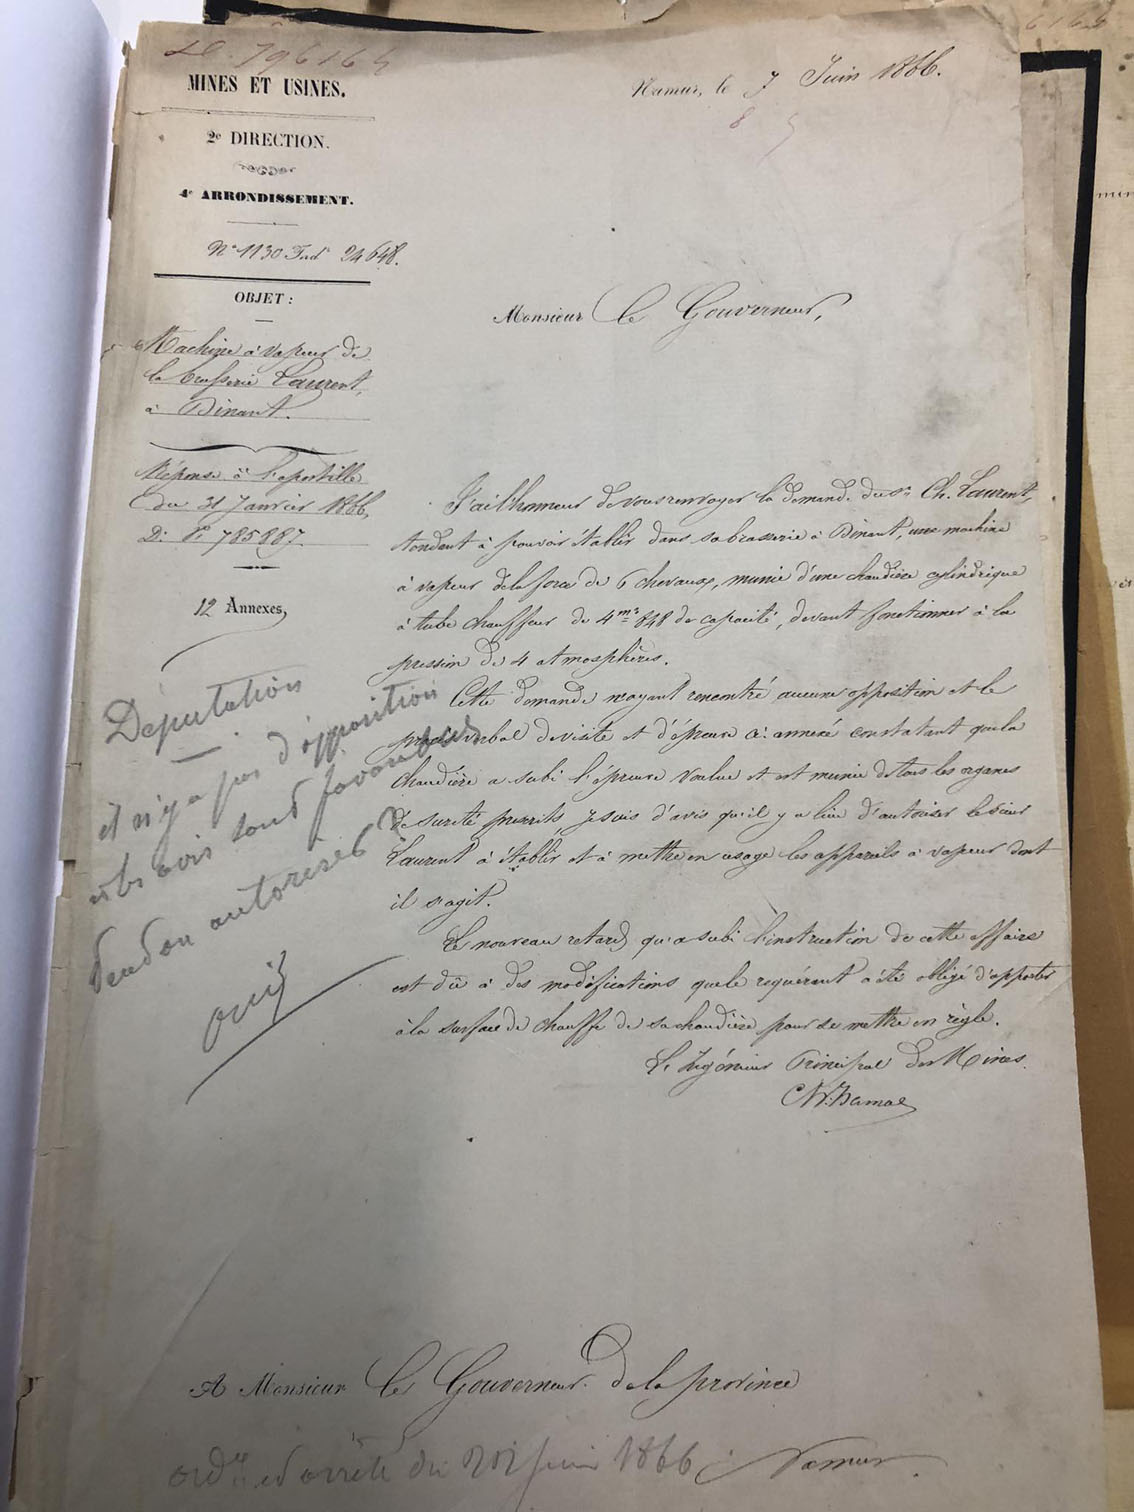 D. 796164
MINES ET USINES.
2e DIRECTION.
4e ARRONDISSEMENT.
N° 1130 Ind 24648.
OBJET :
Machine à vapeur de
la brasserie Laurent,
à Dinant.
Réponse à l'apostille
du 31 Janvier 1866,
785887.
12 Annexes,
Namur, le 7 Juin 1866.
8
Monsieur le Gouverneur,
J'ai l'honneur de vous renvoyer la demande du sr Ch. Laurent,
tendant à pouvoir établir dans sa brasserie à Dinant, une machine
à vapeur de la force de 6 chevaux, munie d'une chaudière cylindrique
à tube chauffeur de 4 m3 848 de capacité, devant fonctionner à la
pression de 4 atmosphères.
Cette demande n'ayant rencontré aucune opposition et le
procès verbal de visite et d'épreuve ci-annexé constatant que la
chaudière a subi l'épreuve voulue et est munie de tous les organes
de sureté prescrits, je suis d'avis qu'il y a lieu d'autoriser le sieur
Laurent à établir et à mettre en usage les appareils à vapeur dont
il s'agit.
Le nouveau retard qu'a subi l'instruction de cette affaire
est dû à des modifications que le requérant a été obligé d'apporter
à la surface de chauffe de sa chaudière pour se mettre en règle.
L'Ingénieur Principal des Mines.
Députation
il n'y a pas d'opposition
et les avis sont favorables
autoriser ?
oui
A Monsieur le Gouverneur de la province
Namur.
et arrêté du juin 1866